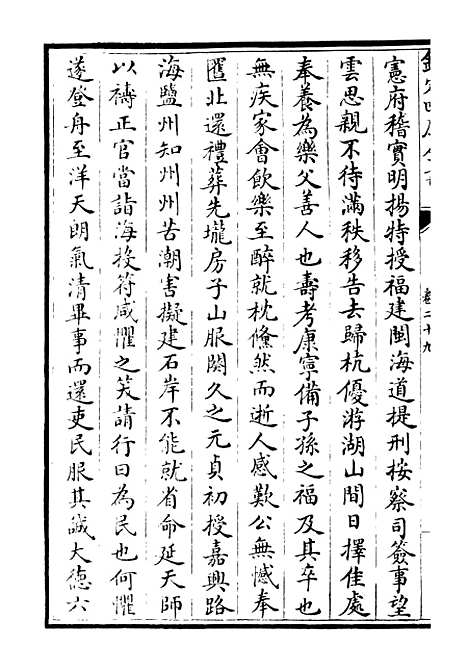 憲府稽實明揚特授福建閩海道提刑按察司簽事望
雲思親不待滿秩移告去歸杭優游湖山間日擇佳處
奉養為樂父善人也壽考康寧備子孫之福及其卒也
無疾家會飲樂至醉就枕翛然而逝人感歎公無憾奉
匶北還禮葬先壠房子山服闋久之元貞初授嘉興路
海鹽州知州州苦潮害擬建石岸不能就省命延天師
以禱正官當詣海投符咸懼之笑請行曰為民也何懼
遂登舟至洋天朗氣清畢事而還吏民服其誠大德六
卷二十九